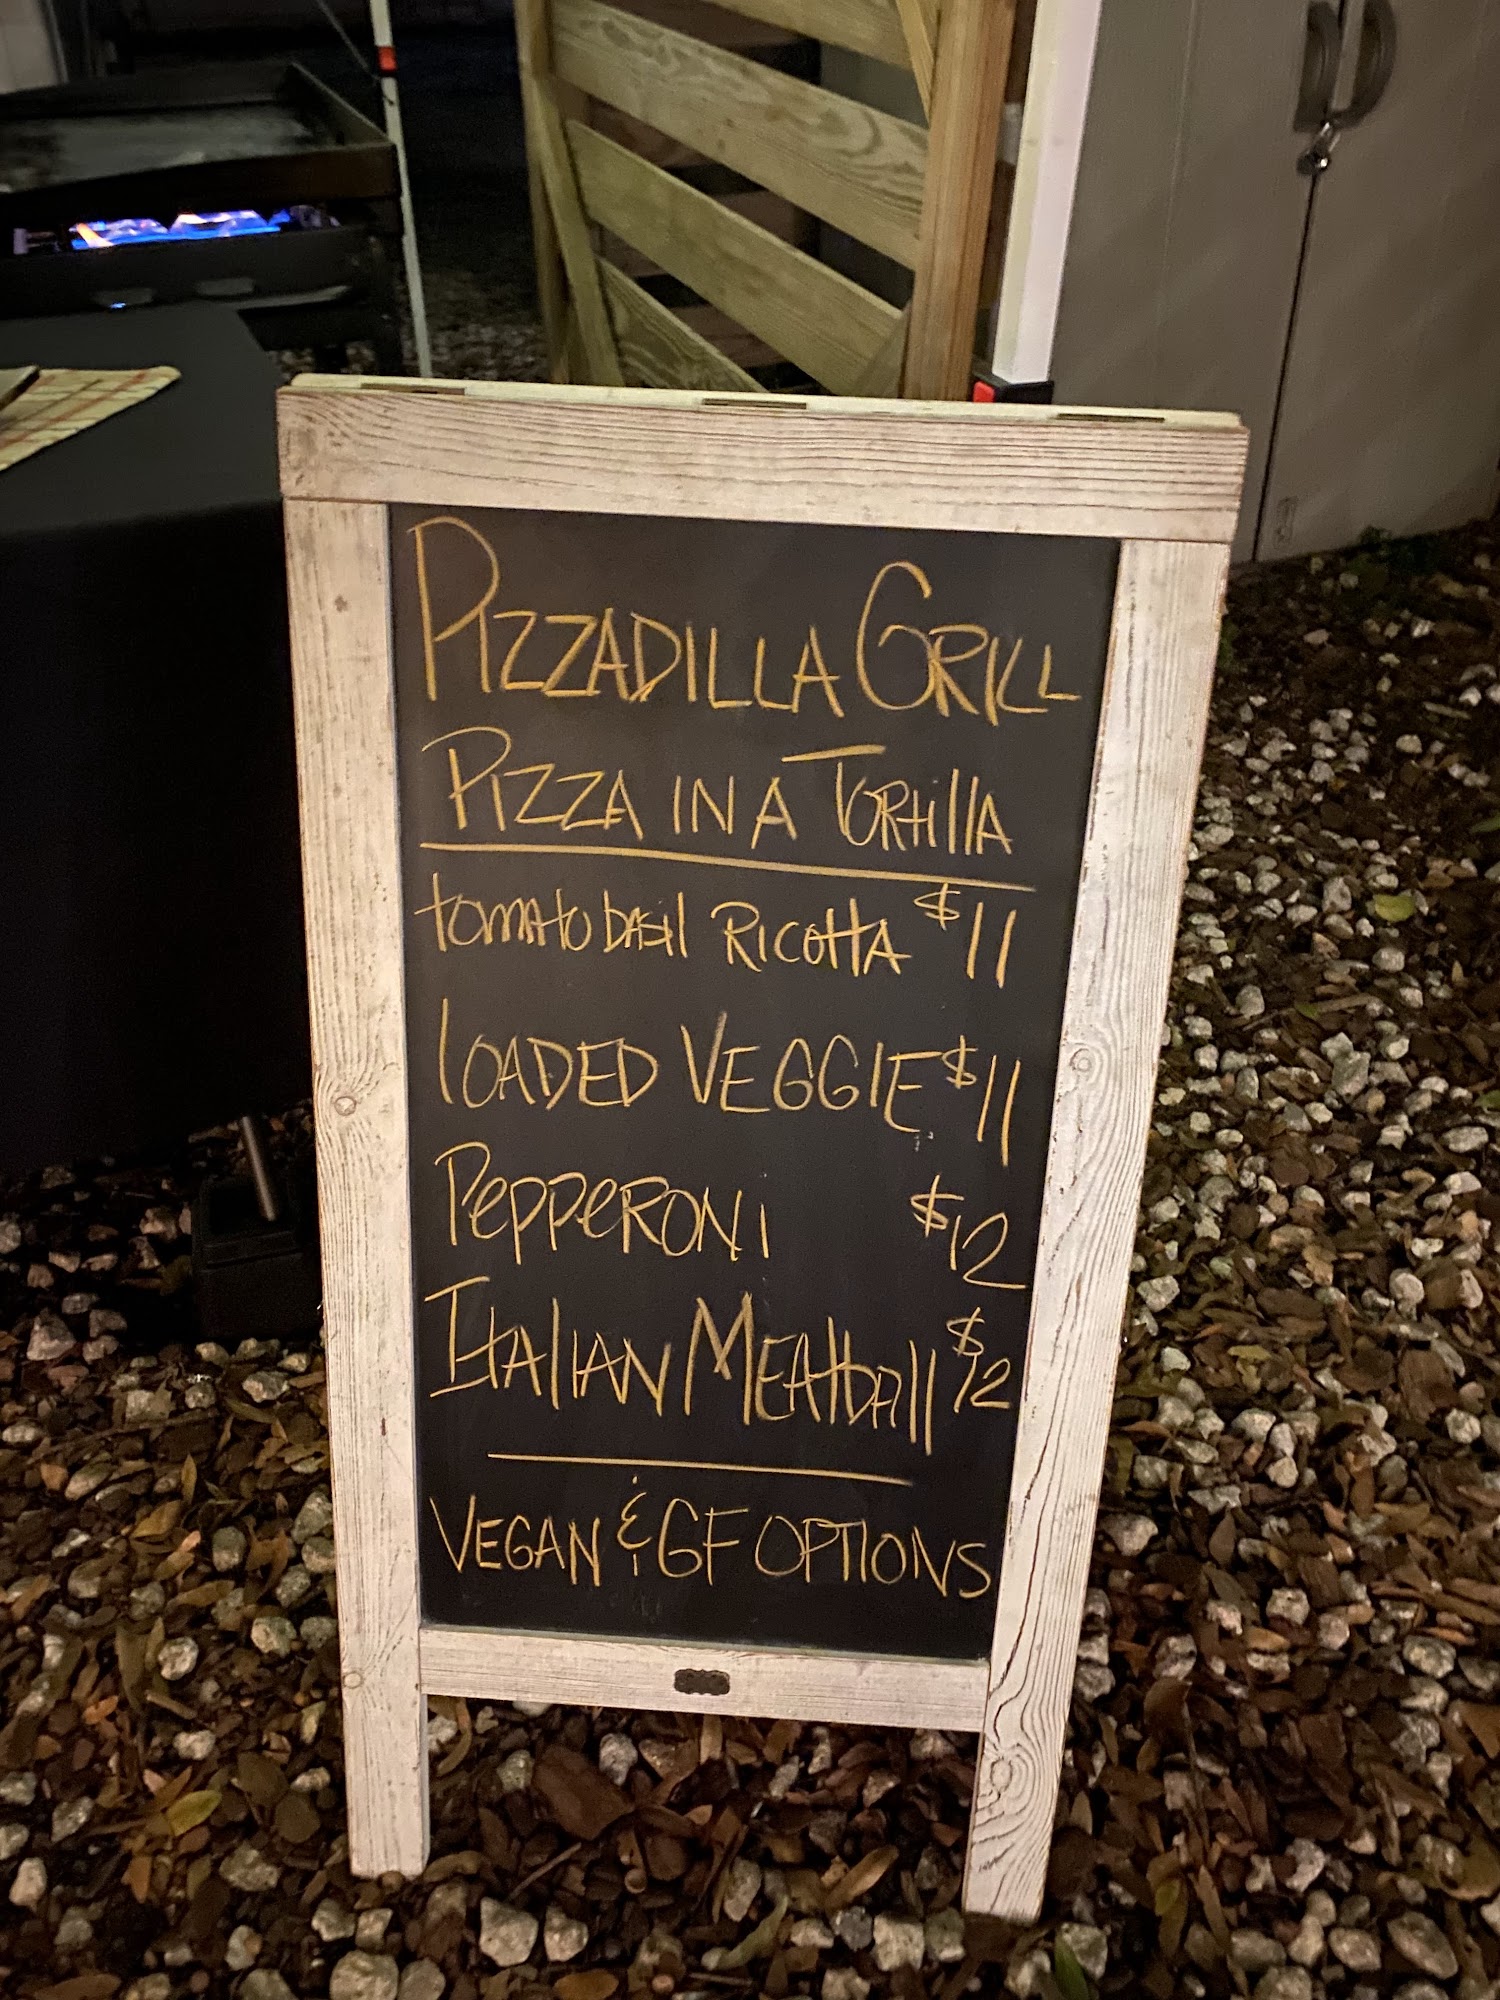 PIZZADILLA GRILL
PIZZA IN A TORtillA
tomato bASil RICottA $11
lOADED VEGGIE $11
PePPeRONi $12
ItAlIAN MEAtbAll $12
VEGAN & GF OPTIONS